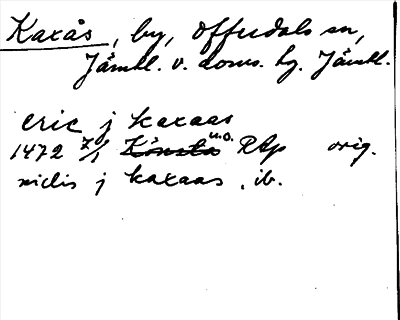 Kaxås, by, Offerdals sn,
Jämtl. v. doms. hg. Jämtl.
eric j kaxaas
1472 7/1 u.o. RAp orig.
nidis j kaxaas, ib.